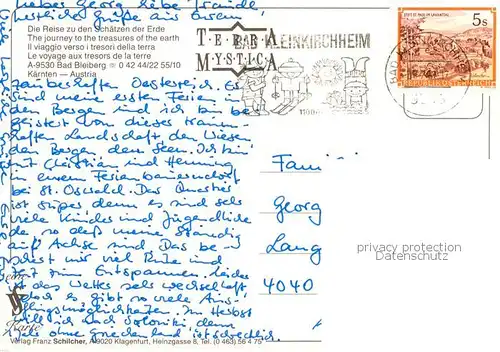 Lieber Georg, liebe Traude
herzliche Grüße aus einem
Die Reise zu den Schätzen der Erde
The journey to the treasures of the earth
Il viaggio verso i tesori della terra
Le voyage aux tresors de la terre
A-9530 Bad Bleiberg 0 42 44/22 55/10
Kärnten — Austria
TERRA
MYSTICA
BAD KLEINKIRCHHEIM
5s
REPUBLIK ÖSTERREICH
zauberhaften Oesterreich. Es
sind meine ersten Ferien in
den Bergen und ich bin
begeistert von dieser traum-
haften Landschaft, den Wiesen
den Bergen den Seen. Ich bin
mit Christian und Henning
in einem Ferienbauerndorf
bei St. Oswald. Das Quartier
ist super denn es sind sehr
viele Kinder und Jugendliche
da so daß meine ständig
auf Achse sind. Das be-
schert mir viel Ruhe und
Zeit zum Entspannen. Leider
ist das Wetter sehr wechselhaft
doch es gibt so viele Aus-
flugsmöglichkeiten. Im Herbst
will ich nach denn
ohne Griechenland ist
Familie
Georg
Lang
4040
privacy protection
Datenschutz
Karte
Verlag Franz Schilcher, A-9020 Klagenfurt, Heinzgasse 8, Tel. (0 463) 56 4 75